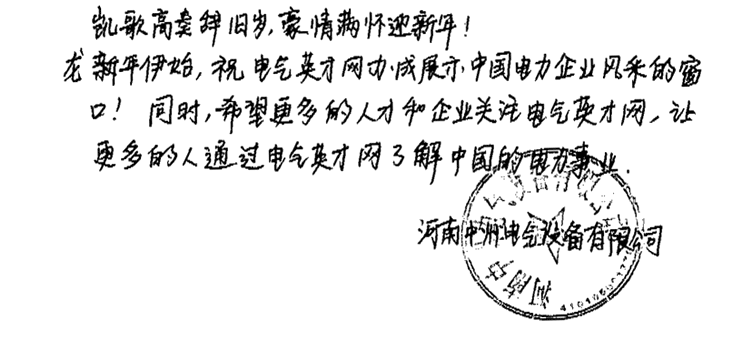 凯歌高奏辞旧岁,豪情满怀迎新年!
龙新年伊始,祝电气英才网办成展示中国电力企业风采的窗
口! 同时,希望更多的人才和企业关注电气英才网,让
更多的人通过电气英才网了解中国的电力事业.
河南中洲电气设备有限公司
河南中